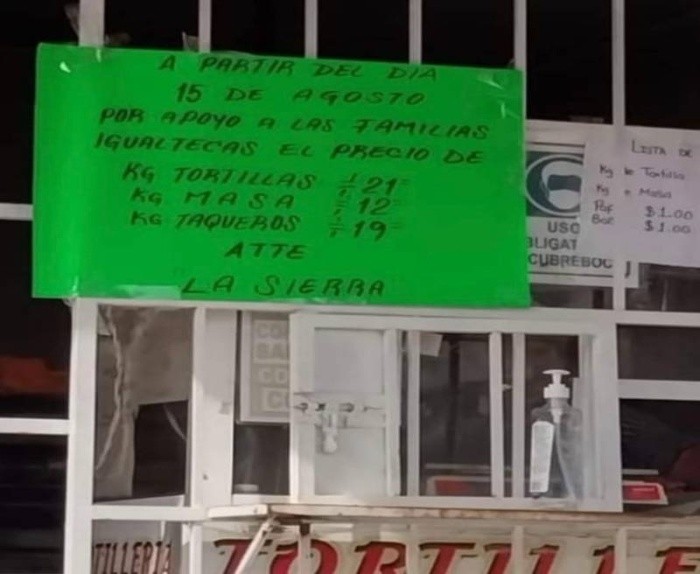 A PARTIR DEL DIA
15 DE AGOSTO
POR APOYO A LAS FAMILIAS
IGUALTECAS EL PRECIO DE
KG TORTILLAS $21=
KG MASA $12=
KG TAQUEROS $19=
ATTE
LA SIERRA
LISTA DE
Kg de Tortilla
Kg Masa
$1.00
$1.00
USO
BLIGAT
CUBREBOC
TILLERIA
TORTILLE